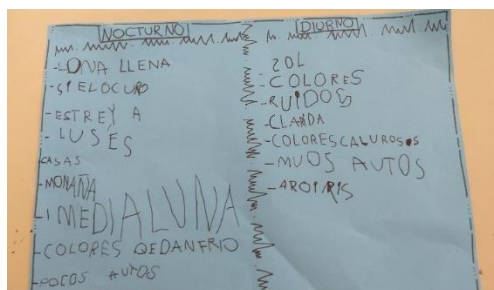 NOCTURNO
-LUNA LLENA
-SIELOCURO
-ESTREYA
-LUSES
CASAS
-MONAÑA
-MEDIALUNA
-COLORES QEDANFRIO
-POCOS AUTOS
DIURNO
SOL
-COLORES
-RUIDOS
-COLORESCALUROSOS
-MUOS AUTOS
-AROIRIS